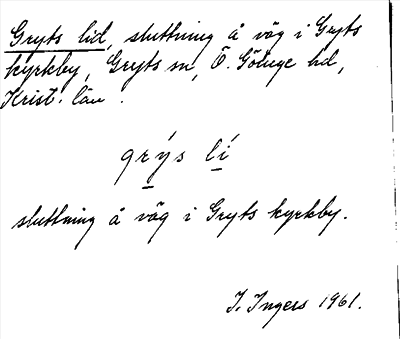 Gryts lid, sluttning å väg i Gryts
kyrkby, Gryts sn, Ö. Göinge hd,
Krist. län.
grýs lí
sluttning å väg i Gryts kyrkby.
I. Ingers 1961.